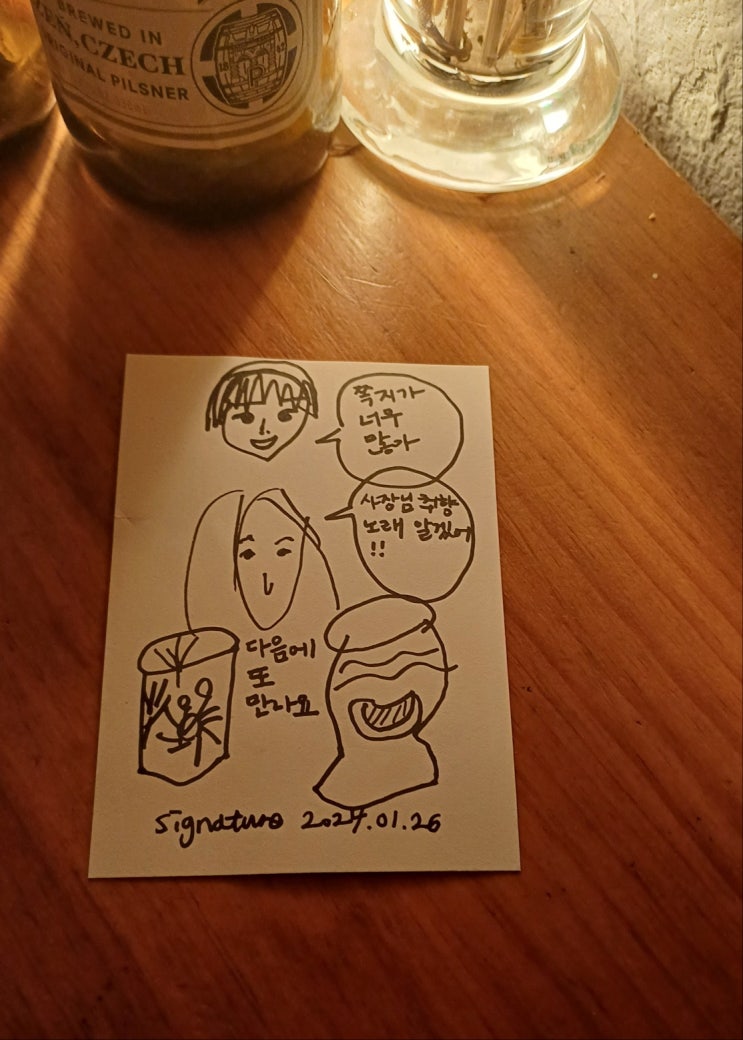 BREWED IN
CZECH
ORIGINAL PILSNER
쪽지가
너무
많아
사장님 취향
노래 알겠어
!!
다음에
또
만나요
Signature 2024.01.26